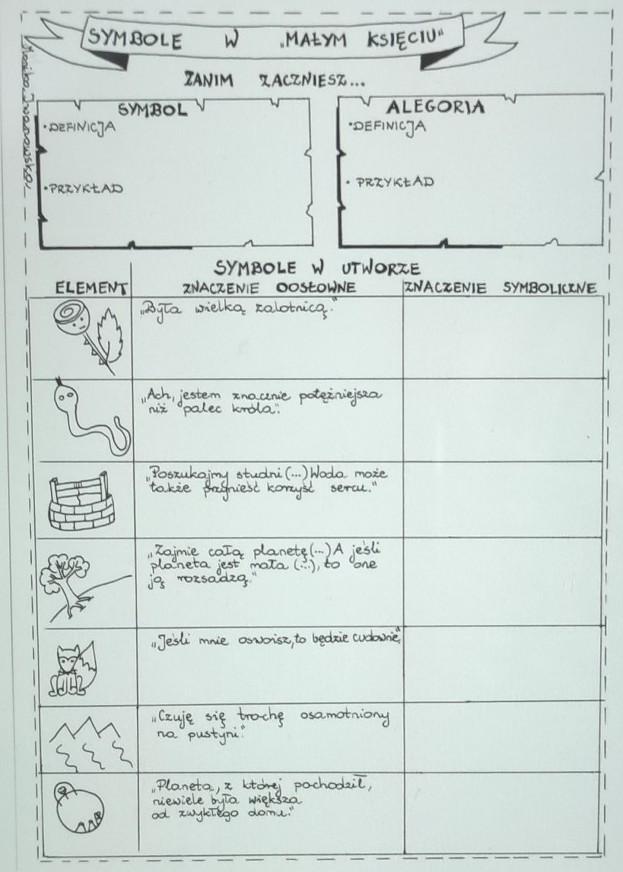 SYMBOLE W „MAŁYM KSIĘCIU"
ZANIM ZACZNIESZ...
SYMBOL
• DEFINICJA
• PRZYKŁAD
ALEGORIA
• DEFINICJA
• PRZYKŁAD
SYMBOLE W UTWORZE
ELEMENT
ZNACZENIE DOSŁOWNE
ZNACZENIE SYMBOLICZNE
„Była wielką zalotnicą."
„Ach, jestem znacznie potężniejsza
niż palec króla".
„Poszukajmy studni (...) Woda może
także przynieść korzyść sercu."
„Zajmie całą planetę (...) A jeśli
planeta jest mała (...), to one
ją rozsadzą."
„Jeśli mnie oswoisz, to będzie cudownie"
„Czuję się trochę osamotniony
na pustyni".
„Planeta, z której pochodził,
niewiele była większa
od zwykłego domu."